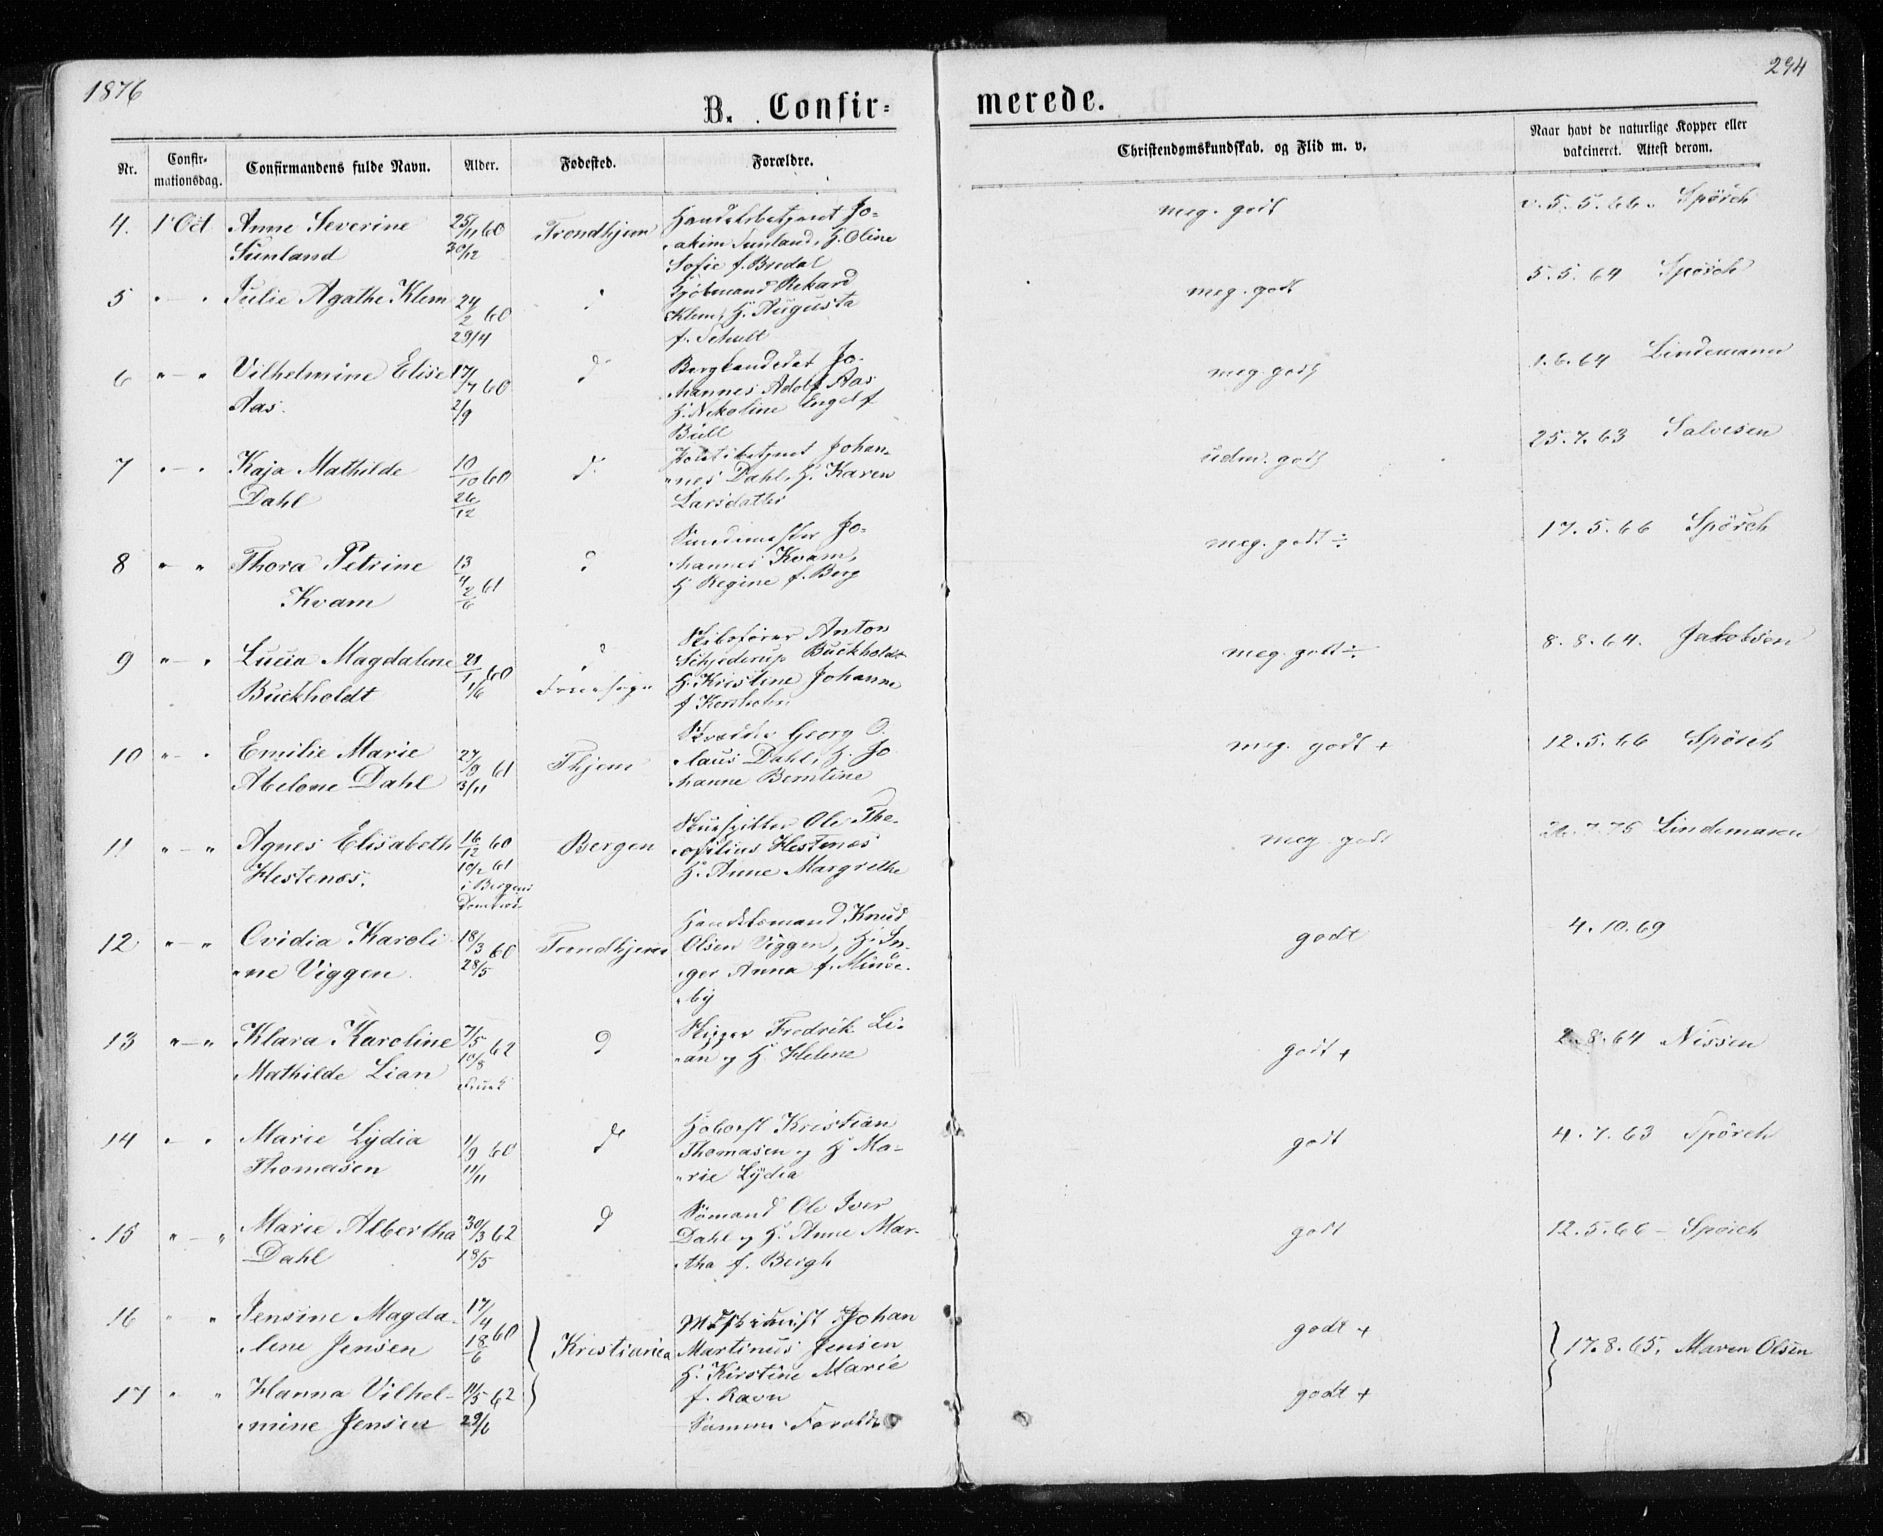 1876
294
B. Confir=
merede.
Nr.
Confir-
mationsdag.
Confirmandens fulde Navn.
Alder.
Fødested.
Forældre.
Christendomskundskab. og Flid m. v.
Naar havt de naturlige Kopper eller
vakcineret. Attest derom.
4. 1' Oct Anne Severine 25/11 60 Trondhjem Handelsbetjent Jo= meg. godt v. 5. 5. 66. Spörch
Sünland 30/12 akim Sunland, H. Oline
Sofie f. Bredal
5 " — " Julie Agathe Klem 24/2 60 d Kjöbmand Rekard meg. godt 5. 5. 64 Spörch
29/4 Klem, H. Augusta
f. Schult
6 " — " Vilhelmine Elise 17/7 60 d Jo- meg. godt 1. 6. 64 Lindemann
Aas. 2/9 hannes Adolf Aas
H. Nikoline Engel f
Büll
7 " — " Kaja Mathilde 10/10 60 d. Politibetjent Johan= udm. godt 25. 7. 63 Salvesen
Dahl 26/12 nes Dahl, H. Karen
Larsdatter
8 " — " Thora Petrine 13/4 61 d Jo= meg. godt ÷ 17. 5. 66 Spörch
Kvam 2/6 hannes Kvam,
H Regine f. Berg
9 " — " Lucia Magdalene 21/1 60 d Skibsfører Anton meg. godt ÷ 8. 8. 64. Jakobsen
Buckholdt 1/6 Fruesogn Schjederup Buckholdt
H. Kristine Johanne
f
10 " — " Emilie Marie 27/9 61 Thjem Skrædder Georg O. meg. godt + 12. 5. 66 Spörch
Abelone Dahl 3/11 laus Dahl, H. Jo
hanne Berntine
11 " — " Agnes Elisabeth 16/12 60 Bergen Ole The- meg. godt 75 Lindemann
Hestenæs. 10/2 61 ofilius Hestenæs
i Bergens H. Anne Margrethe
12 " — " Ovidia Karoli 18/3 60 Trondhjem Handelsmand Knud godt 4. 10. 69
ne Viggen 28/5 Olsen Viggen, H. In-
ger Anna f. Minde-
by
13 " — " Klara Karoline 7/5 62 d Skipper Fredrik Li- godt + 2. 8. 64 Nissen
Mathilde Lian 10/8 an og H. Helene
14 " — " Marie Lydia 1/9 60 d Kristian godt 4. 7. 63 Spörch
Thomasen 11/11 Thomasen og H Ma-
rie Lydia
15 " — " Marie Albertha 30/3 62 d Sømand Ole Iver godt 12. 5. 66 — Spörch
Dahl 18/5 Dahl og H. Anne Mar-
tha f. Bergh
16 " " Jensine Magda 17/4 60 Johan godt +
lene Jensen 18/6 Kristiania Martinus Jensen 17. 8. 65. Maren Olsen
H. Kirstine Marie
17 " " Hanna Vilhel- 11/5 62 f. Ravn godt +
mine Jensen 29/6 Samme Forældre